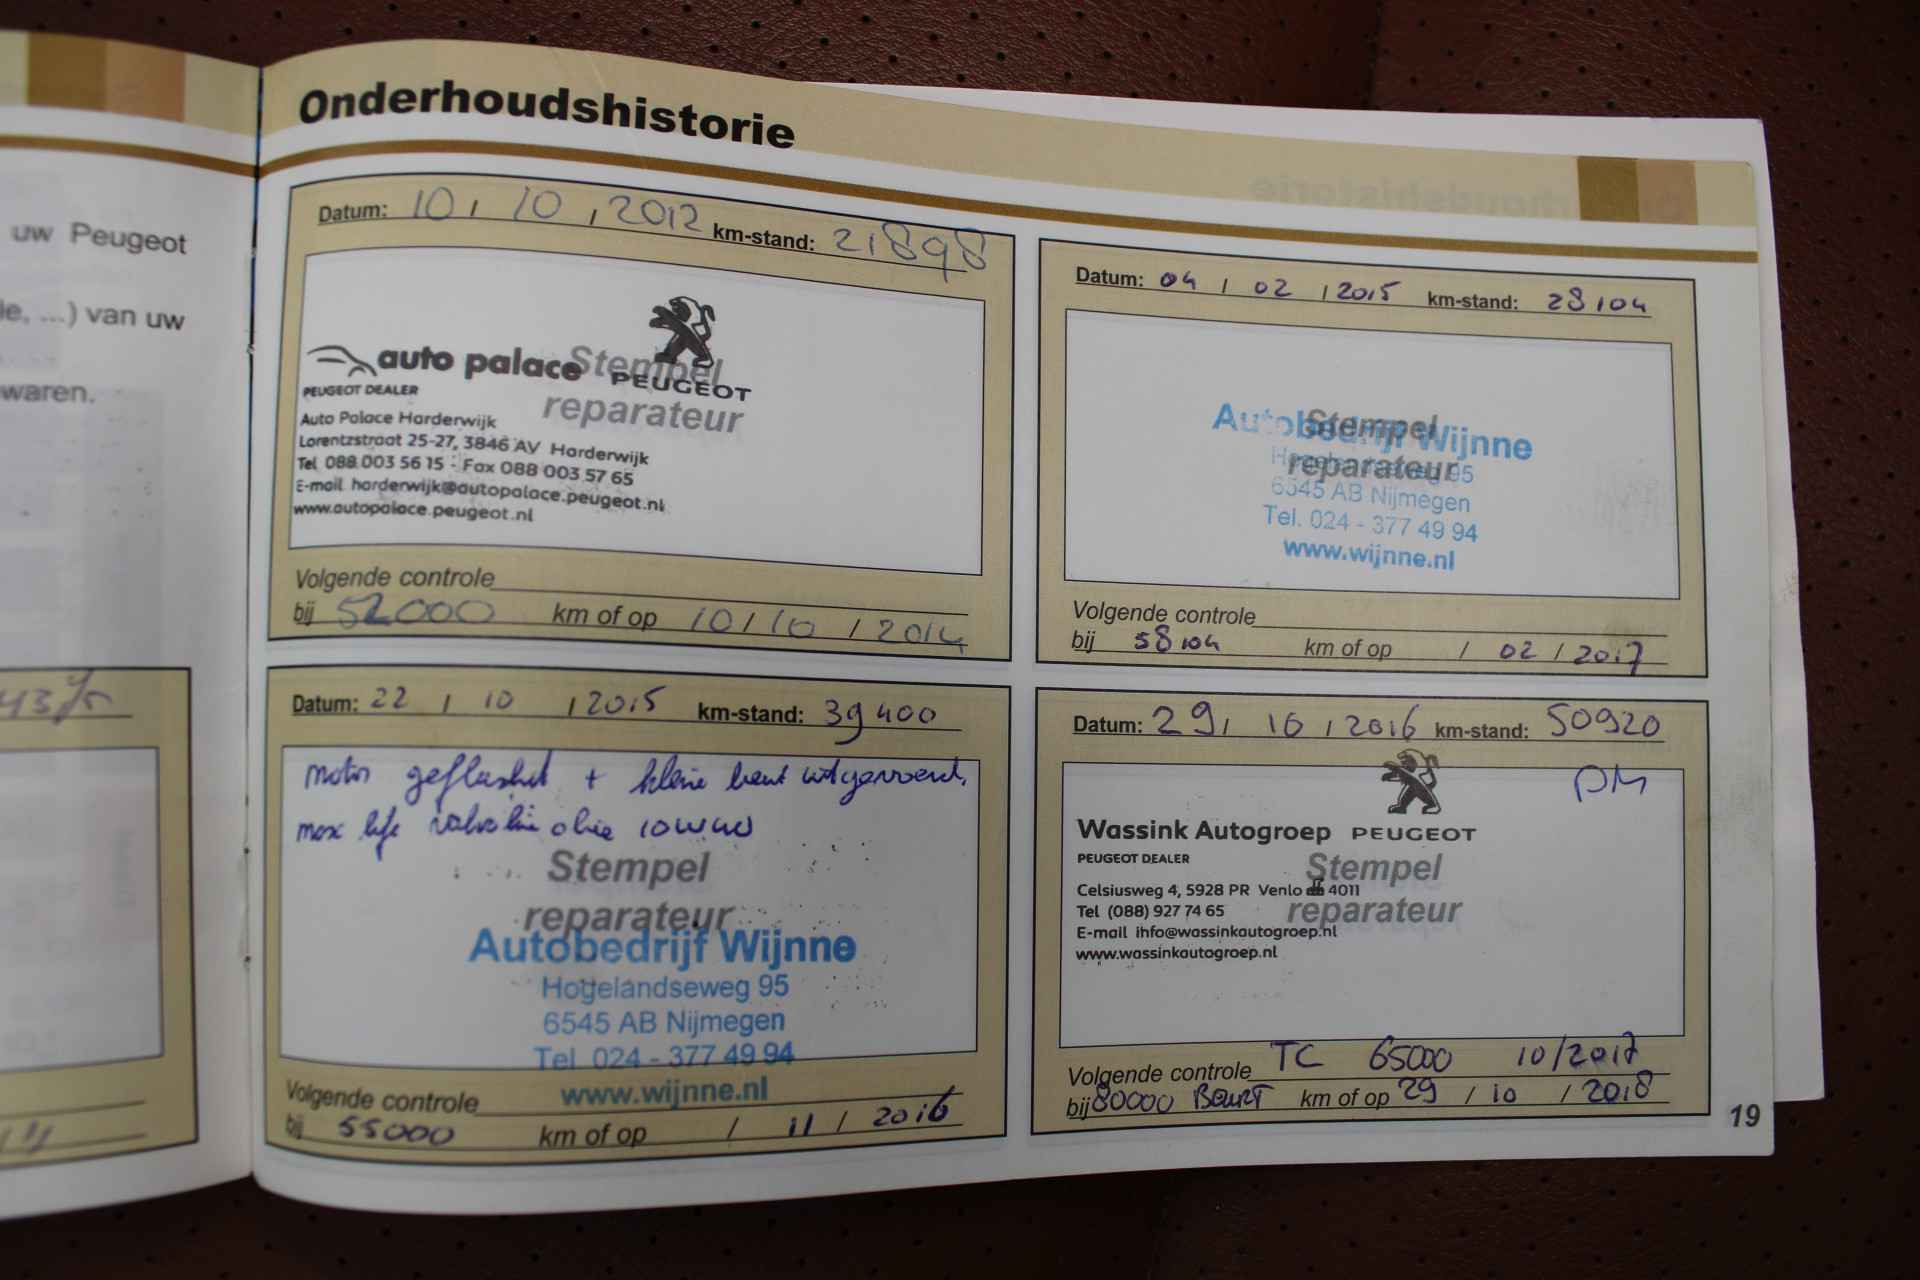 uw Peugeot
le, ...) van uw
waren.
Onderhoudshistorie
Datum: 10 / 10 / 2012 km-stand: 21898
auto palace
PEUGEOT
PEUGEOT DEALER
Stempel
reparateur
Auto Palace Harderwijk
Lorentzstraat 25-27, 3846 AV Harderwijk
Tel 088 003 56 15 - Fax 088 003 57 65
E-mail harderwijk@autopalace.peugeot.nl
www.autopalace.peugeot.nl
Volgende controle
bij 52000 km of op 10 / 10 / 2014
Datum: 04 / 02 / 2015 km-stand: 28104
Stempel
reparateur
Autobedrijf Wijnne
Hogelandseweg 95
6545 AB Nijmegen
Tel. 024 - 377 49 94
www.wijnne.nl
Volgende controle
bij 58104 km of op / 02 / 2017
Datum: 22 / 10 / 2015 km-stand: 39400
motor geflashed + kleine beurt uitgevoerd.
max life valvoline olie 10W40
Stempel
reparateur
Autobedrijf Wijnne
Hogelandseweg 95
6545 AB Nijmegen
Tel. 024 - 377 49 94
www.wijnne.nl
Volgende controle
bij 55000 km of op / 11 / 2016
Datum: 29 / 10 / 2016 km-stand: 50920
DM
Wassink Autogroep PEUGEOT
PEUGEOT DEALER
Stempel
reparateur
Celsiusweg 4, 5928 PR Venlo 4011
Tel (088) 927 74 65
E-mail info@wassinkautogroep.nl
www.wassinkautogroep.nl
Volgende controle TC 65000 10/2017
bij 80000 BEURT km of op 29 / 10 / 2018
19